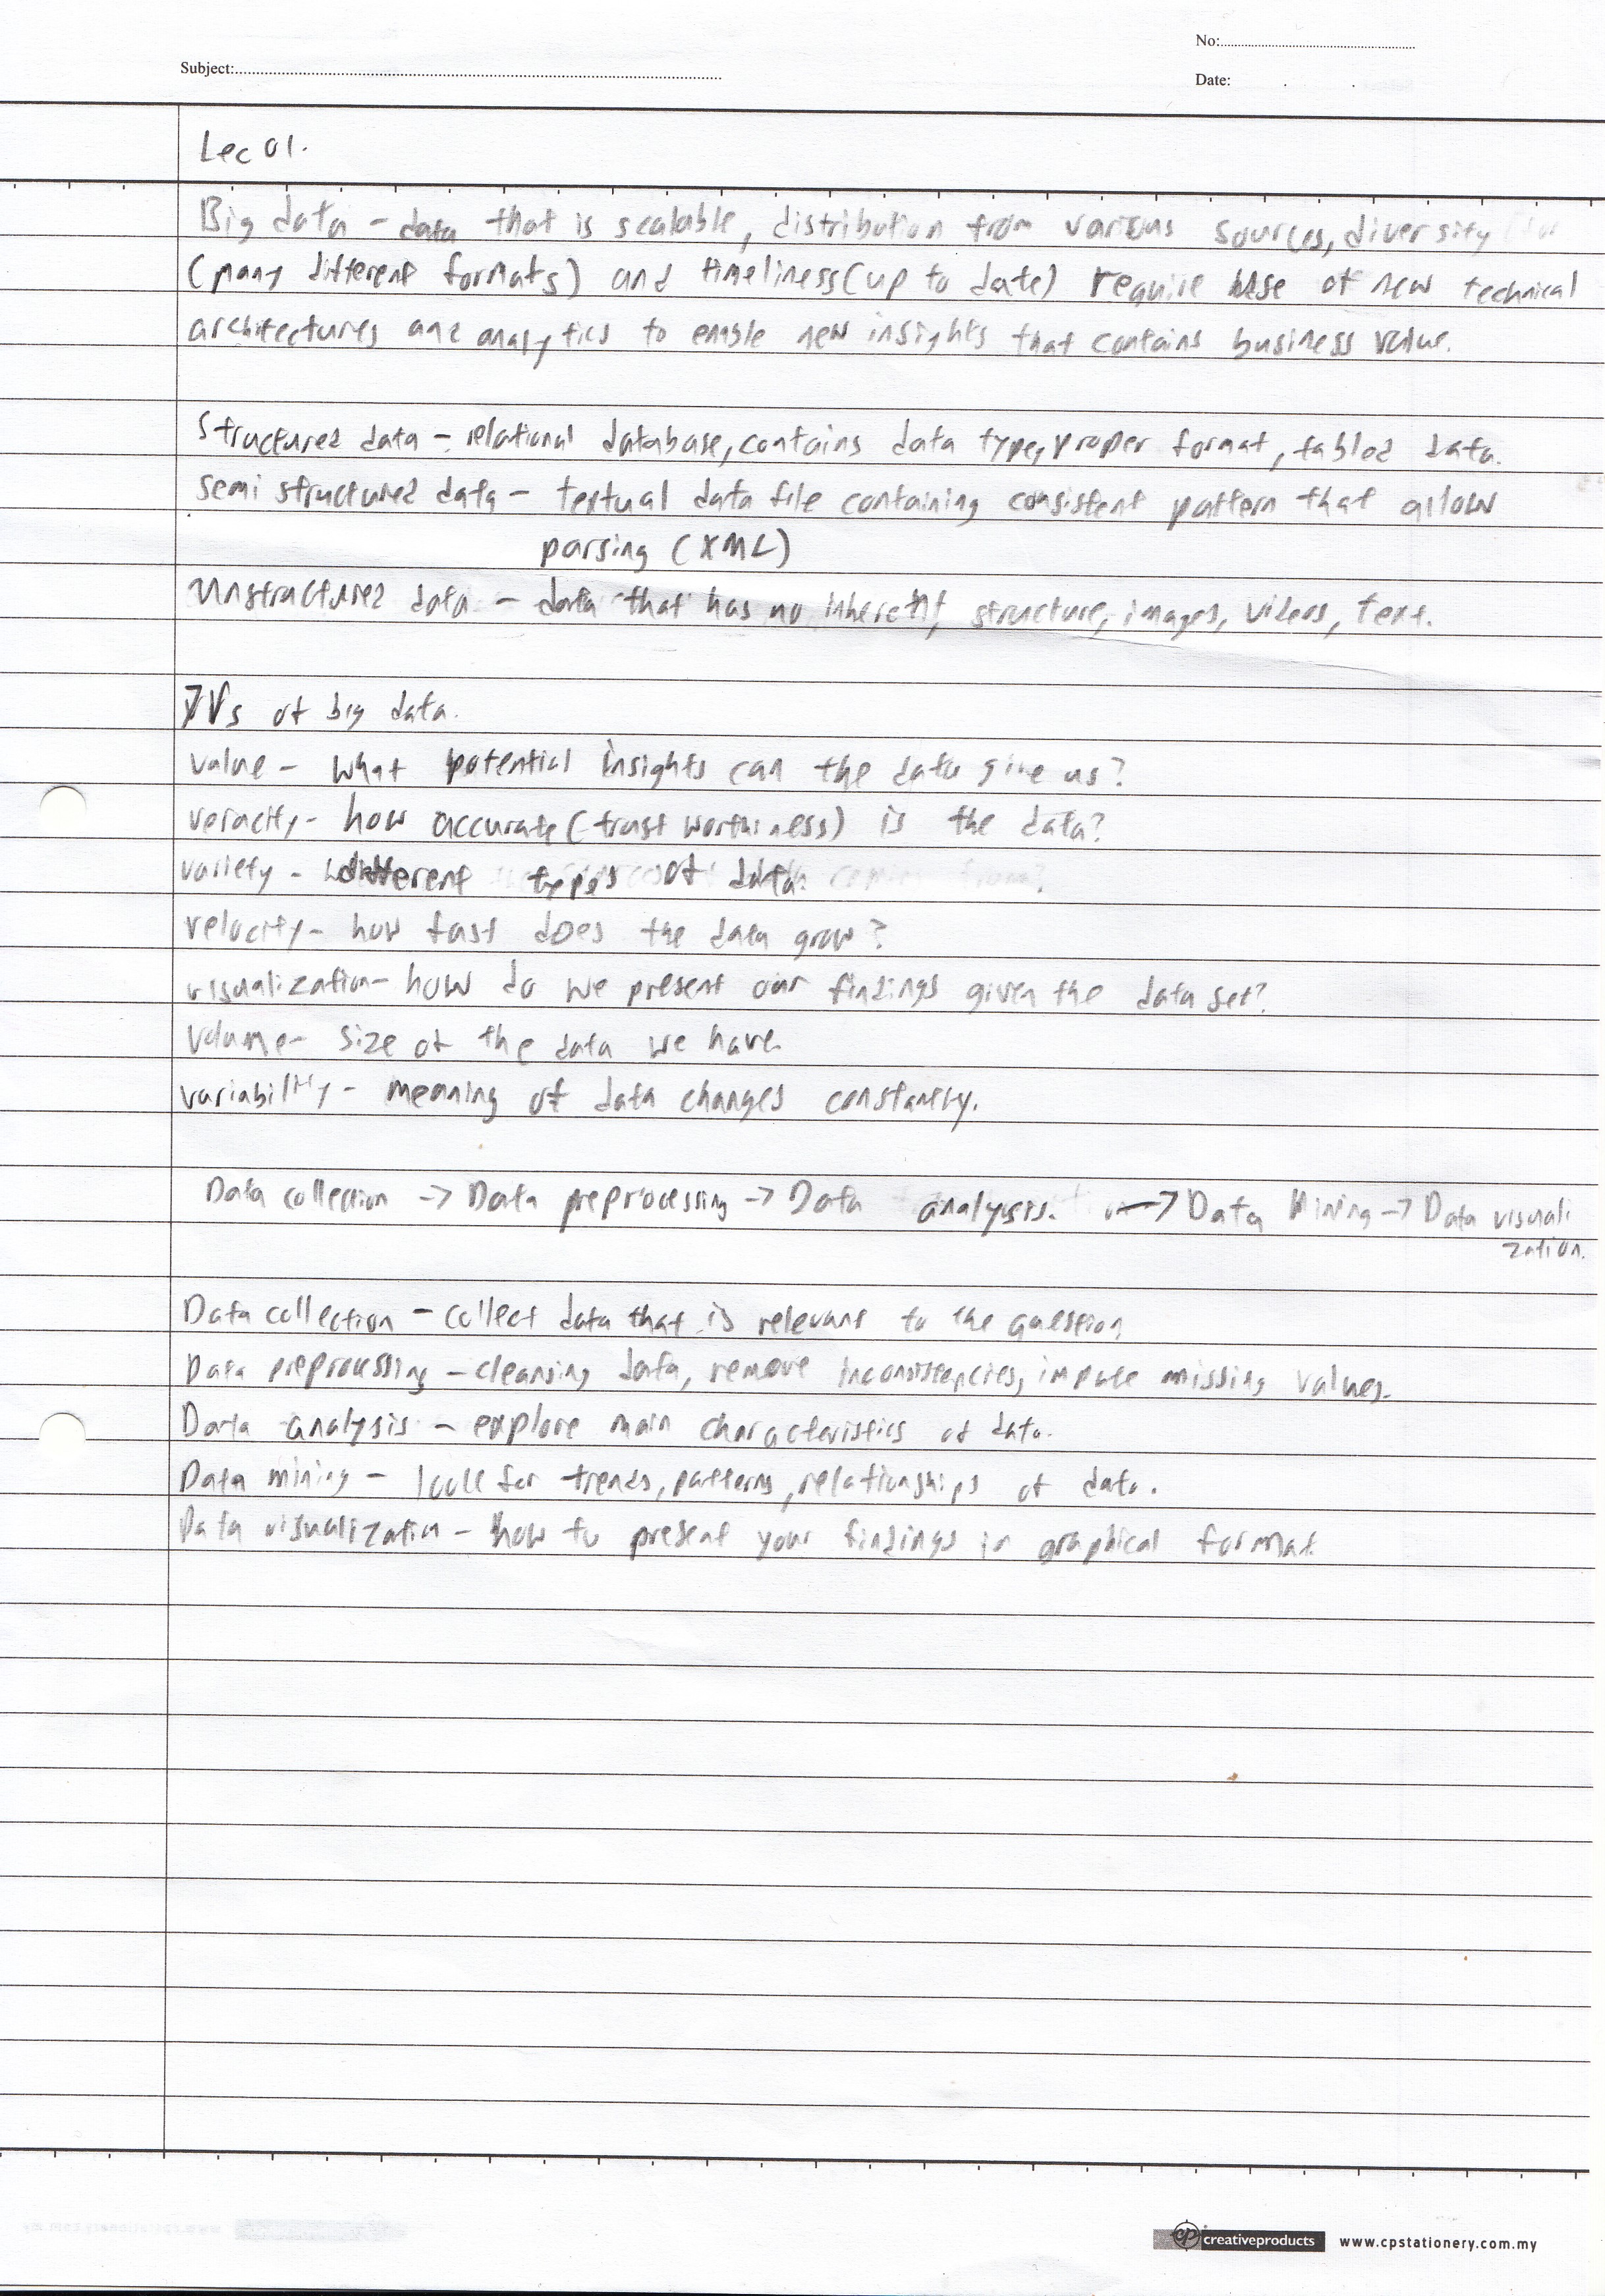 No:
Subject:
Date:
Lec 01.
Big data - data that is scalable, distribution from various sources, diversity
(many different formats) and timeliness (up to date) require use of new technical
architectures and analytics to enable new insights that contains business value.
Structured data - relational database, contains data type, proper format, tabled data.
Semi structured data - textual data file containing consistent pattern that allow
parsing (XML)
Unstructured data - data that has no inherent, structure, images, videos, text.
7Vs of big data.
value - what potential insights can the data give us?
veracity - how accurate (trust worthiness) is the data?
variety - different types of data
velocity - how fast does the data grow?
visualization - how do we present our findings given the data set?
volume - size of the data we have.
variability - meaning of data changes constantly.
Data collection -> Data preprocessing -> Data analysis. -> Data Mining -> Data visuali
zation.
Data collection - collect data that is relevant to the question
Data preprocessing - cleansing data, remove inconsistencies, impute missing values.
Data analysis - explore main characteristics of data.
Data mining - look for trends, patterns, relationships of data.
Data visualization - how to present your findings in graphical format
cp creativeproducts www.cpstationery.com.my